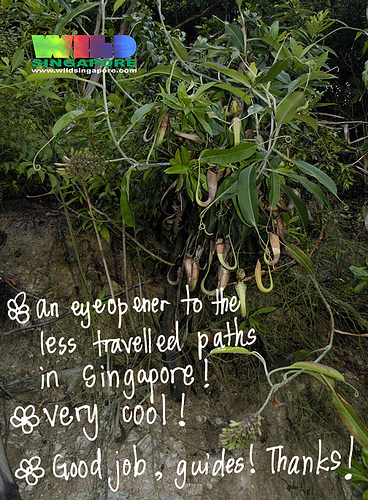 WILD
SINGAPORE
www.wildsingapore.com
an eyeopener to the
less travelled paths
in Singapore!
very cool!
Good job, guides! Thanks!